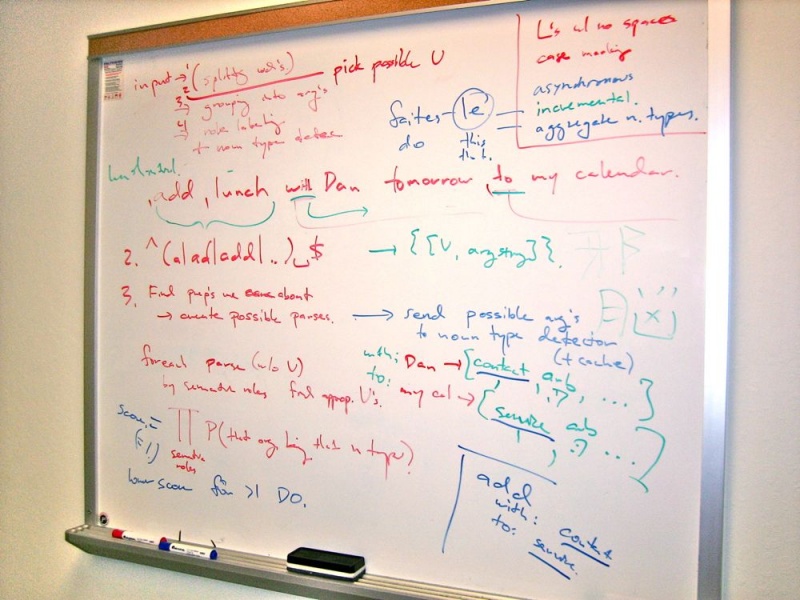 input → 1 (splitty wds.)
2
pick possible V
3 groupy into arg's
4 role labeling
+ noun type detec
L's w/ no spaces
case marking
asynchronous
incremental.
aggregate n. types.
faites – le
do this
,add , lunch with Dan tomorrow , to my calendar.
2. ^(a|ad|add|..)␣$ → {[V, argstr]}.
3. Find prep's we care about
→ create possible parses. → send possible arg's
to noun type detector
(+ cache)
foreach parse (w/o V)
by semantic roles find approp. V's.
with: Dan → {contact arb, ...}
to: my cal → {service arb
, ...}
score = ∏ P(that arg being that n type)
semantic
roles
lower score for >1 DO.
add
with: contact
to: service